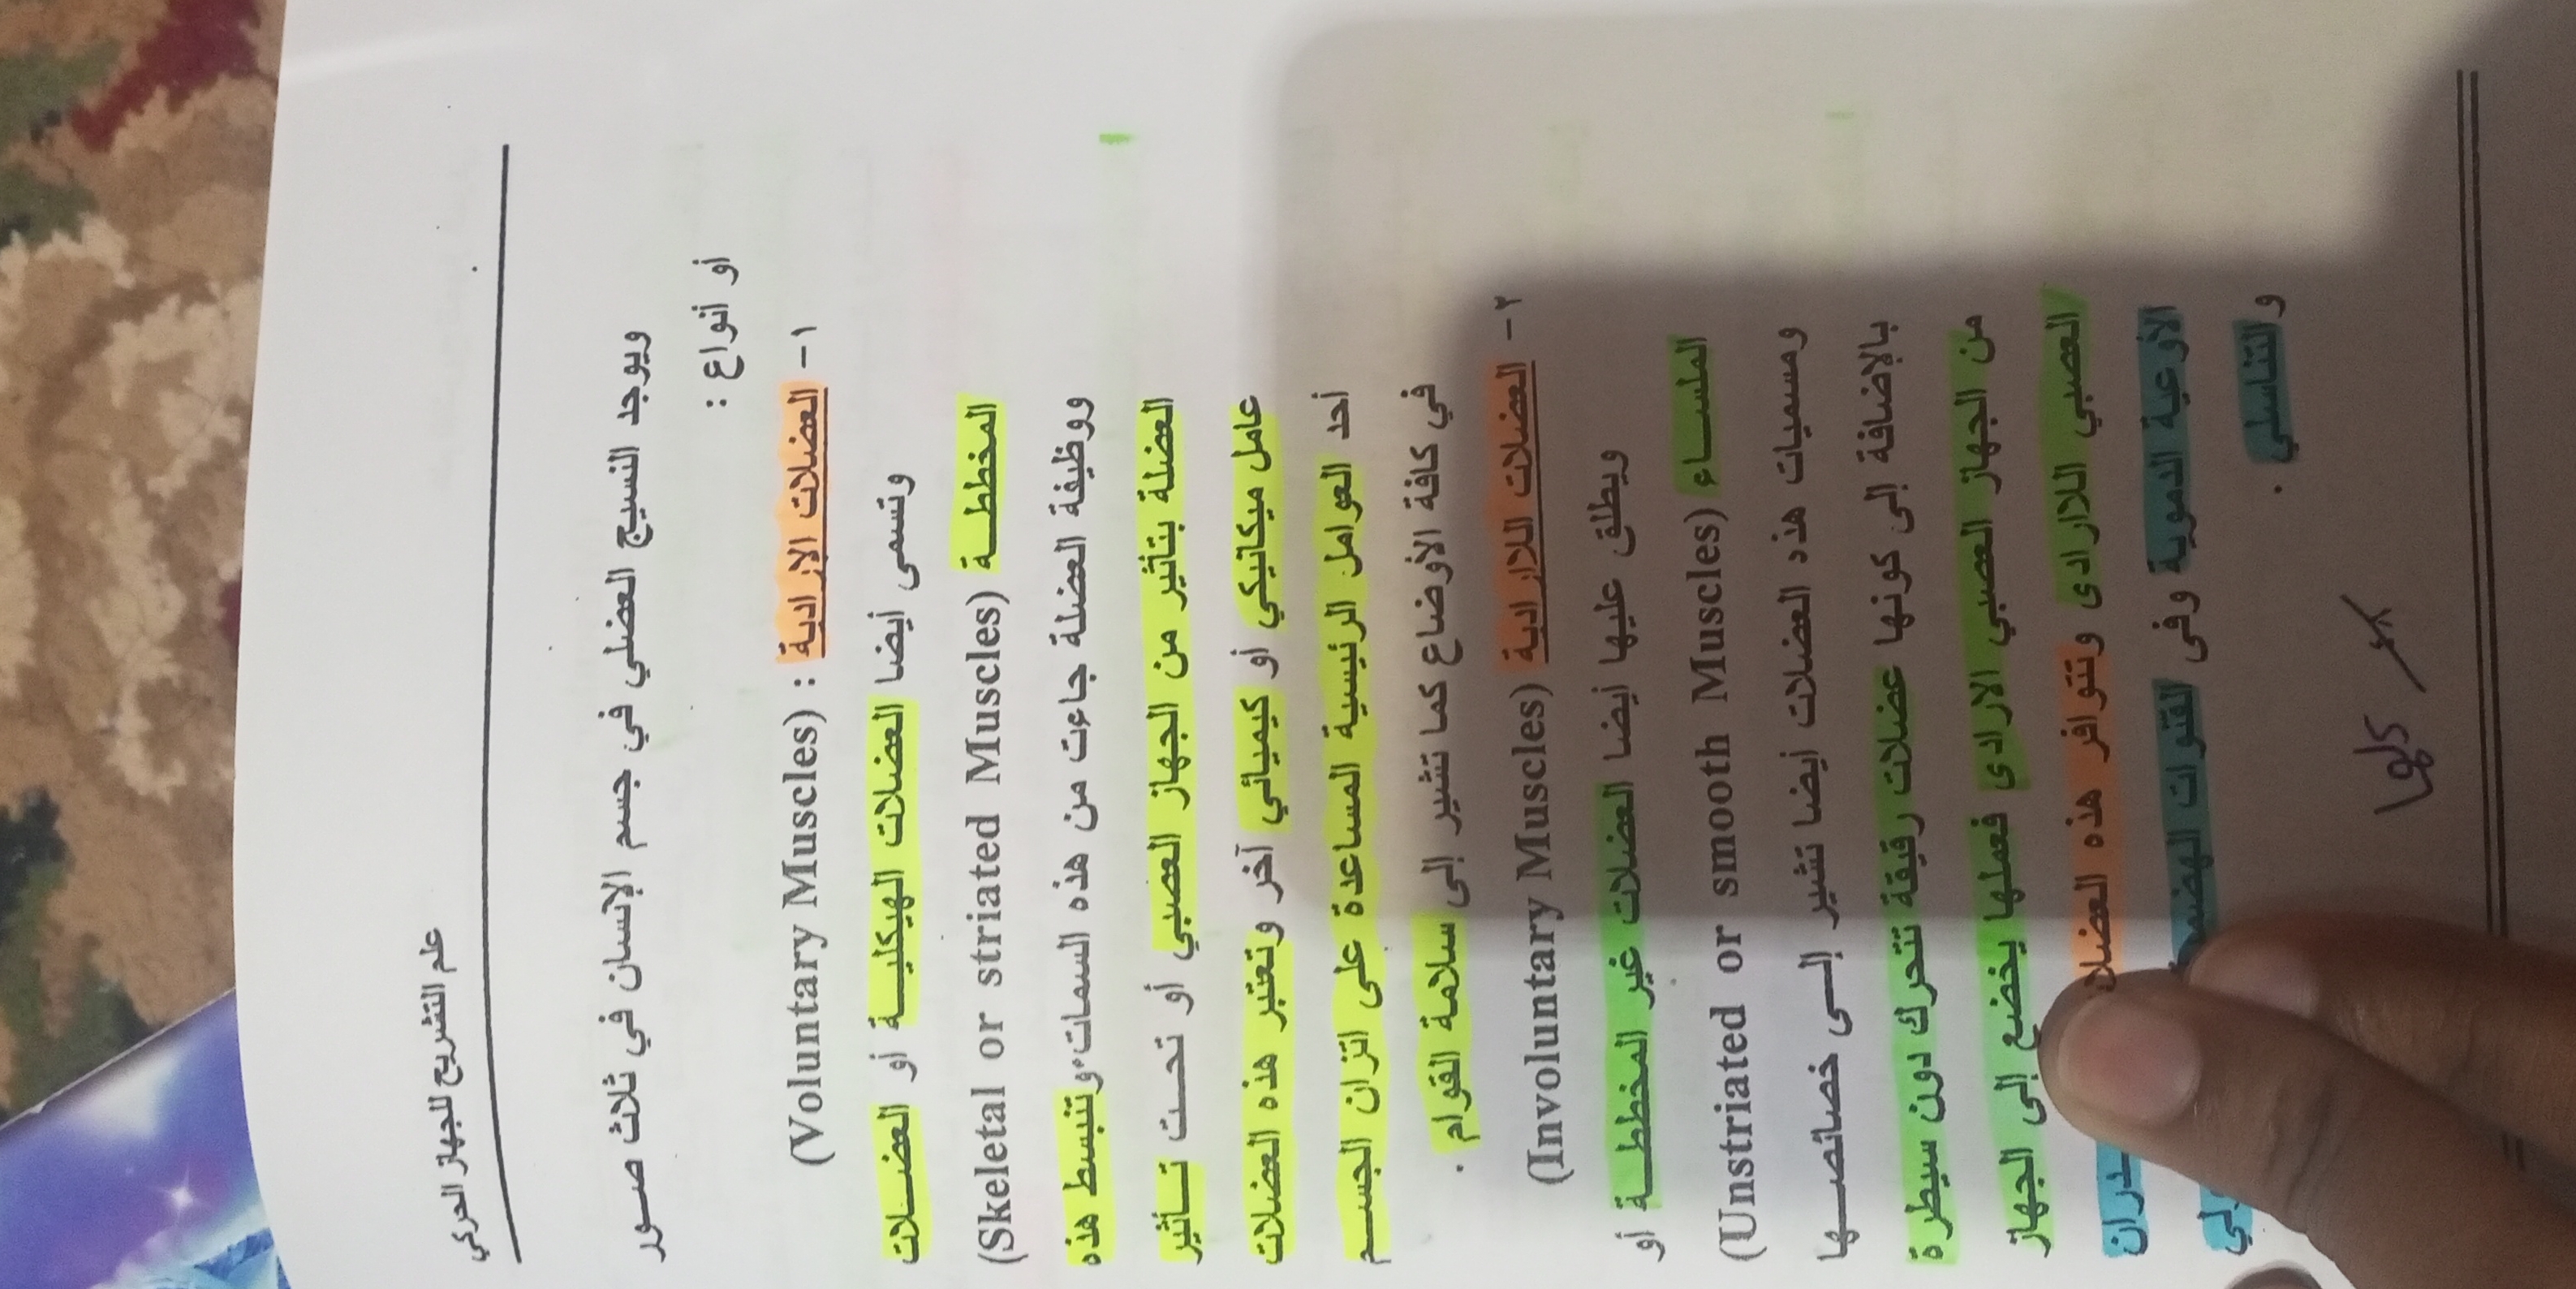 علم التشريح للجهاز الحركي
ويوجد النسيج العضلي في جسم الإنسان في ثلاث صور
أو أنواع :
١- العضلات الإرادية : (Voluntary Muscles)
وتسمى أيضا العضلات الهيكلية أو العضلات
المخططة (Skeletal or striated Muscles)
ووظيفة العضلة جاءت من هذه السمات وتنبسط هذه
العضلة بتأثير من الجهاز العصبي أو تحت تأثير
عامل ميكانيكي أو كيميائي آخر وتعتبر هذه العضلات
أحد العوامل الرئيسية المساعدة على اتزان الجسم
في كافة الأوضاع كما تشير إلى سلامة القوام .
٢- العضلات اللاإرادية (Involuntary Muscles)
ويطلق عليها أيضا العضلات غير المخططة أو
الملساء (Unstriated or smooth Muscles)
ومسميات هذه العضلات أيضا تشير إلى خصائصها
بالإضافة إلى كونها عضلات رقيقة تتحرك دون سيطرة
من الجهاز العصبي الارادى فعملها يخضع إلى الجهاز
العصبي اللاارادى وتتوافر هذه
الأوعية الدموية وفى القنوات
والتناسلي .
كلها